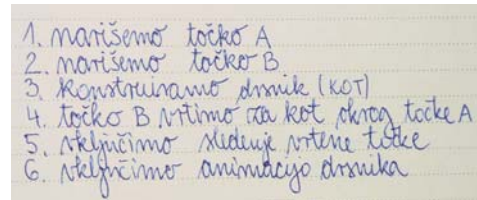 1. narišemo točko A
2. narišemo točko B
3. konstruiramo drsnik (KOT)
4. točko B vrtimo za kot okrog točke A
5. vključimo sledenje vrtene točke
6. vključimo animacijo drsnika